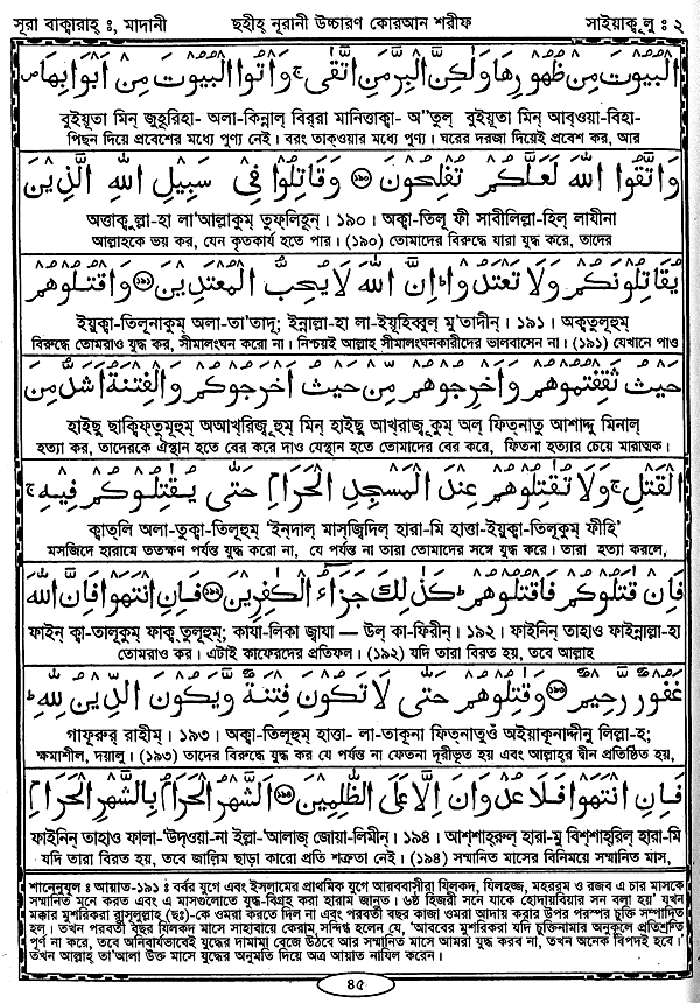 সূরা বাক্বারাহ্ ঃ, মাদানী ছহীহ্ নূরানী উচ্চারণ কোরআন শরীফ সাইয়াক্বূলু ঃ ২
الْبُيُوْتَ مِنْ ظُهُوْرِهَا وَلٰكِنَّ الْبِرَّ مَنِ اتَّقٰى ۚ وَاْتُوا الْبُيُوْتَ مِنْ اَبْوَابِهَا ۪
বুইয়ূতা মিন্ জুহূরিহা- অলা-কিন্নাল্ বির্‌রা মানিত্তাক্বা- অ"তুল্ বুইয়ূতা মিন্ আব্‌ওয়া-বিহা-
পিছন দিয়ে প্রবেশের মধ্যে পুণ্য নেই। বরং তাকওয়ার মধ্যে পুণ্য। ঘরের দরজা দিয়েই প্রবেশ কর, আর
وَاتَّقُوا اللهَ لَعَلَّكُمْ تُفْلِحُوْنَ ۝١٩٠ وَقَاتِلُوْا فِىْ سَبِيْلِ اللهِ الَّذِيْنَ
অত্তাকুল্লা-হা লা'আল্লাকুম্ তুফ্‌লিহূন্। ১৯০। অক্বা-তিলূ ফী সাবীলিল্লা-হিল্ লাযীনা
আল্লাহকে ভয় কর, যেন কৃতকার্য হতে পার। (১৯০) তোমাদের বিরুদ্ধে যারা যুদ্ধ করে, তাদের
يُقَاتِلُوْنَكُمْ وَلَا تَعْتَدُوْا ؕ اِنَّ اللهَ لَا يُحِبُّ الْمُعْتَدِيْنَ ۝١٩١ وَاقْتُلُوْهُمْ
ইয়ুক্বা-তিলূনাকুম্ অলা-তা'তাদূ; ইন্নাল্লা-হা লা-ইয়ূহিব্বুল্ মু'তাদীন্। ১৯১। অক্‌তুলূহুম্
বিরুদ্ধে তোমরাও যুদ্ধ কর, সীমালংঘন করো না। নিশ্চয়ই আল্লাহ সীমালংঘনকারীদের ভালবাসেন না। (১৯১) যেখানে পাও
حَيْثُ ثَقِفْتُمُوْهُمْ وَاَخْرِجُوْهُمْ مِّنْ حَيْثُ اَخْرَجُوْكُمْ وَالْفِتْنَةُ اَشَدُّ مِنَ
হাইছু ছাক্বিফ্‌তুমূহুম্ অআখ্‌রিজূহুম্ মিন্ হাইছু আখ্‌রাজূকুম্ অল্ ফিত্‌নাতু আশাদ্দু মিনাল্
হত্যা কর, তাদেরকে ঐস্থান হতে বের করে দাও যেস্থান হতে তোমাদের বের করে, ফিতনা হত্যার চেয়ে মারাত্মক।
الْقَتْلِ ۚ وَلَا تُقٰتِلُوْهُمْ عِنْدَ الْمَسْجِدِ الْحَرَامِ حَتّٰى يُقٰتِلُوْكُمْ فِيْهِ ۚ
ক্বাত্‌লি অলা-তুক্বা-তিলূহুম্ 'ইন্‌দাল্ মাস্‌জিদিল্ হারা-মি হাত্তা-ইয়ুক্বা-তিলূকুম্ ফীহি'
মসজিদে হারামে ততক্ষণ পর্যন্ত যুদ্ধ করো না, যে পর্যন্ত না তারা তোমাদের সঙ্গে যুদ্ধ করে। তারা হত্যা করলে,
فَاِنْ قٰتَلُوْكُمْ فَاقْتُلُوْهُمْ ؕ كَذٰلِكَ جَزَآءُ الْكٰفِرِيْنَ ۝١٩٢ فَاِنِ انْتَهَوْا فَاِنَّ اللهَ
ফাইন্ ক্বা-তালূকুম্ ফাক্ব্ তুলূহুম্; কাযা-লিকা জ্বাযা — উল্ কা-ফিরীন্। ১৯২। ফাইনিন্ তাহাও ফাইন্নাল্লা-হা
তোমরাও কর। এটাই কাফেরদের প্রতিফল। (১৯২) যদি তারা বিরত হয়, তবে আল্লাহ
غَفُوْرٌ رَّحِيْمٌ ۝١٩٣ وَقٰتِلُوْهُمْ حَتّٰى لَا تَكُوْنَ فِتْنَةٌ وَّيَكُوْنَ الدِّيْنُ لِلّٰهِ ؕ
গাফূরুর্ রাহীম্। ১৯৩। অক্বা-তিলূহুম্ হাত্তা- লা-তাকূনা ফিত্‌নাতুওঁ অইয়াকূনাদ্দীনু লিল্লা-হ;
ক্ষমাশীল, দয়ালু। (১৯৩) তাদের বিরুদ্ধে যুদ্ধ কর যে পর্যন্ত না ফেতনা দূরীভূত হয় এবং আল্লাহ্‌র দ্বীন প্রতিষ্ঠিত হয়,
فَاِنِ انْتَهَوْا فَلَا عُدْوَانَ اِلَّا عَلَى الظّٰلِمِيْنَ ۝١٩٤ اَلشَّهْرُ الْحَرَامُ بِالشَّهْرِ الْحَرَامِ
ফাইনিন্ তাহাও ফালা-'উদ্‌ওয়া-না ইল্লা-'আলাজ্ জোয়া-লিমীন্। ১৯৪। আশ্‌শাহ্‌রুল্ হারা-মু বিশ্‌শাহ্‌রিল্ হারা-মি
যদি তারা বিরত হয়, তবে জালিম ছাড়া কারো প্রতি শত্রুতা নেই। (১৯৪) সম্মানিত মাসের বিনিময়ে সম্মানিত মাস,
শানেনুযুল ঃ আয়াত-১৯১ ঃ বর্বর যুগে এবং ইসলামের প্রাথমিক যুগে আরববাসীরা যিলকদ, যিলহজ্জ, মহররম ও রজব এ চার মাসকে
সম্মানিত মনে করত এবং এ মাসগুলোতে যুদ্ধ-বিগ্রহ করা হারাম জানত। ৬ষ্ঠ হিজরী সনে যাকে হোদায়বিয়ার সন বলা হয়" যখন
মক্কার মুশরিকরা রাসূলুল্লাহ (ছঃ)-কে ওমরা করতে দিল না এবং পরবর্তী বছর কাজা ওমরা আদায় করার উপর পরস্পর চুক্তি সম্পাদিত
হল। তখন পরবর্তী বছর যিলকদ মাসে সাহাবায়ে কেরাম সন্দিগ্ধ হলেন যে, 'আরবের মুশরিকরা যদি চুক্তিনামার অনুকূলে প্রতিশ্রুতি
পূর্ণ না করে, তবে অনিবার্যভাবেই যুদ্ধের দামামা বেজে উঠবে আর সম্মানিত মাসে আমরা যুদ্ধ করব না, তখন অনেক বিপদই হবে।'
তখন আল্লাহ্ তা'আলা উক্ত মাসে যুদ্ধের অনুমতি দিয়ে অত্র আয়াত নাযিল করেন।
৪৫